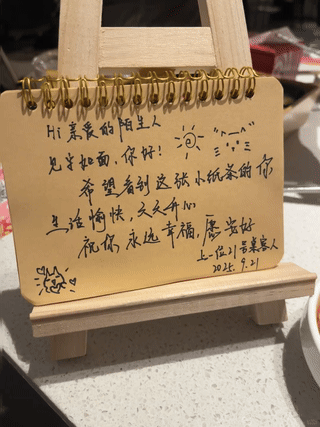 Hi 亲爱的陌生人
见字如面，你好！
希望看到这张小纸条的你
生活愉快，天天开心
祝你永远幸福，愿安好
上一位21号桌客人
2025.9.21